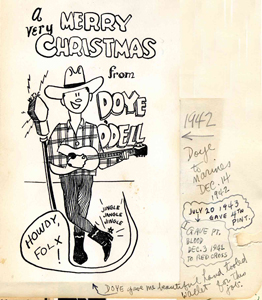 a
very MERRY
CHRISTMAS
from
DOYE
ODELL
HOWDY,
FOLX!
JINGLE
JANGLE
JINGLE
1942
Doye
to
Marines
DEC. 14
1942
JULY 20 1943
GAVE 4TH
PINT.
GAVE PT.
BLOOD
DEC. 3 1942
TO RED CROSS
DOYE gave me beautiful hand tooled
wallet for this
job.